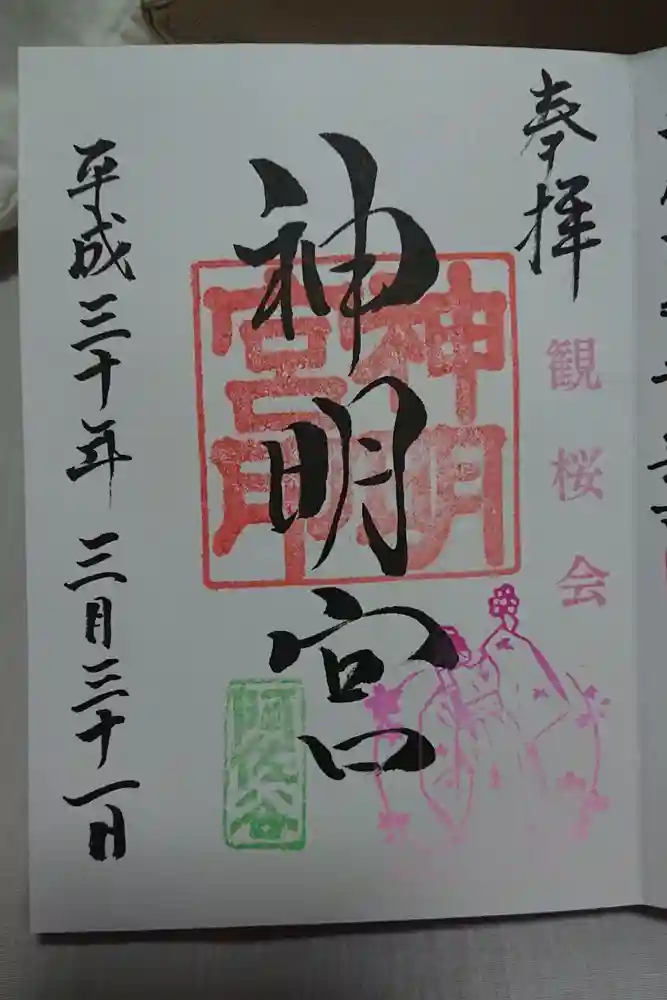 奉拝
観桜会
神明宮
神明宮印
阿佐谷
平成三十年三月三十一日